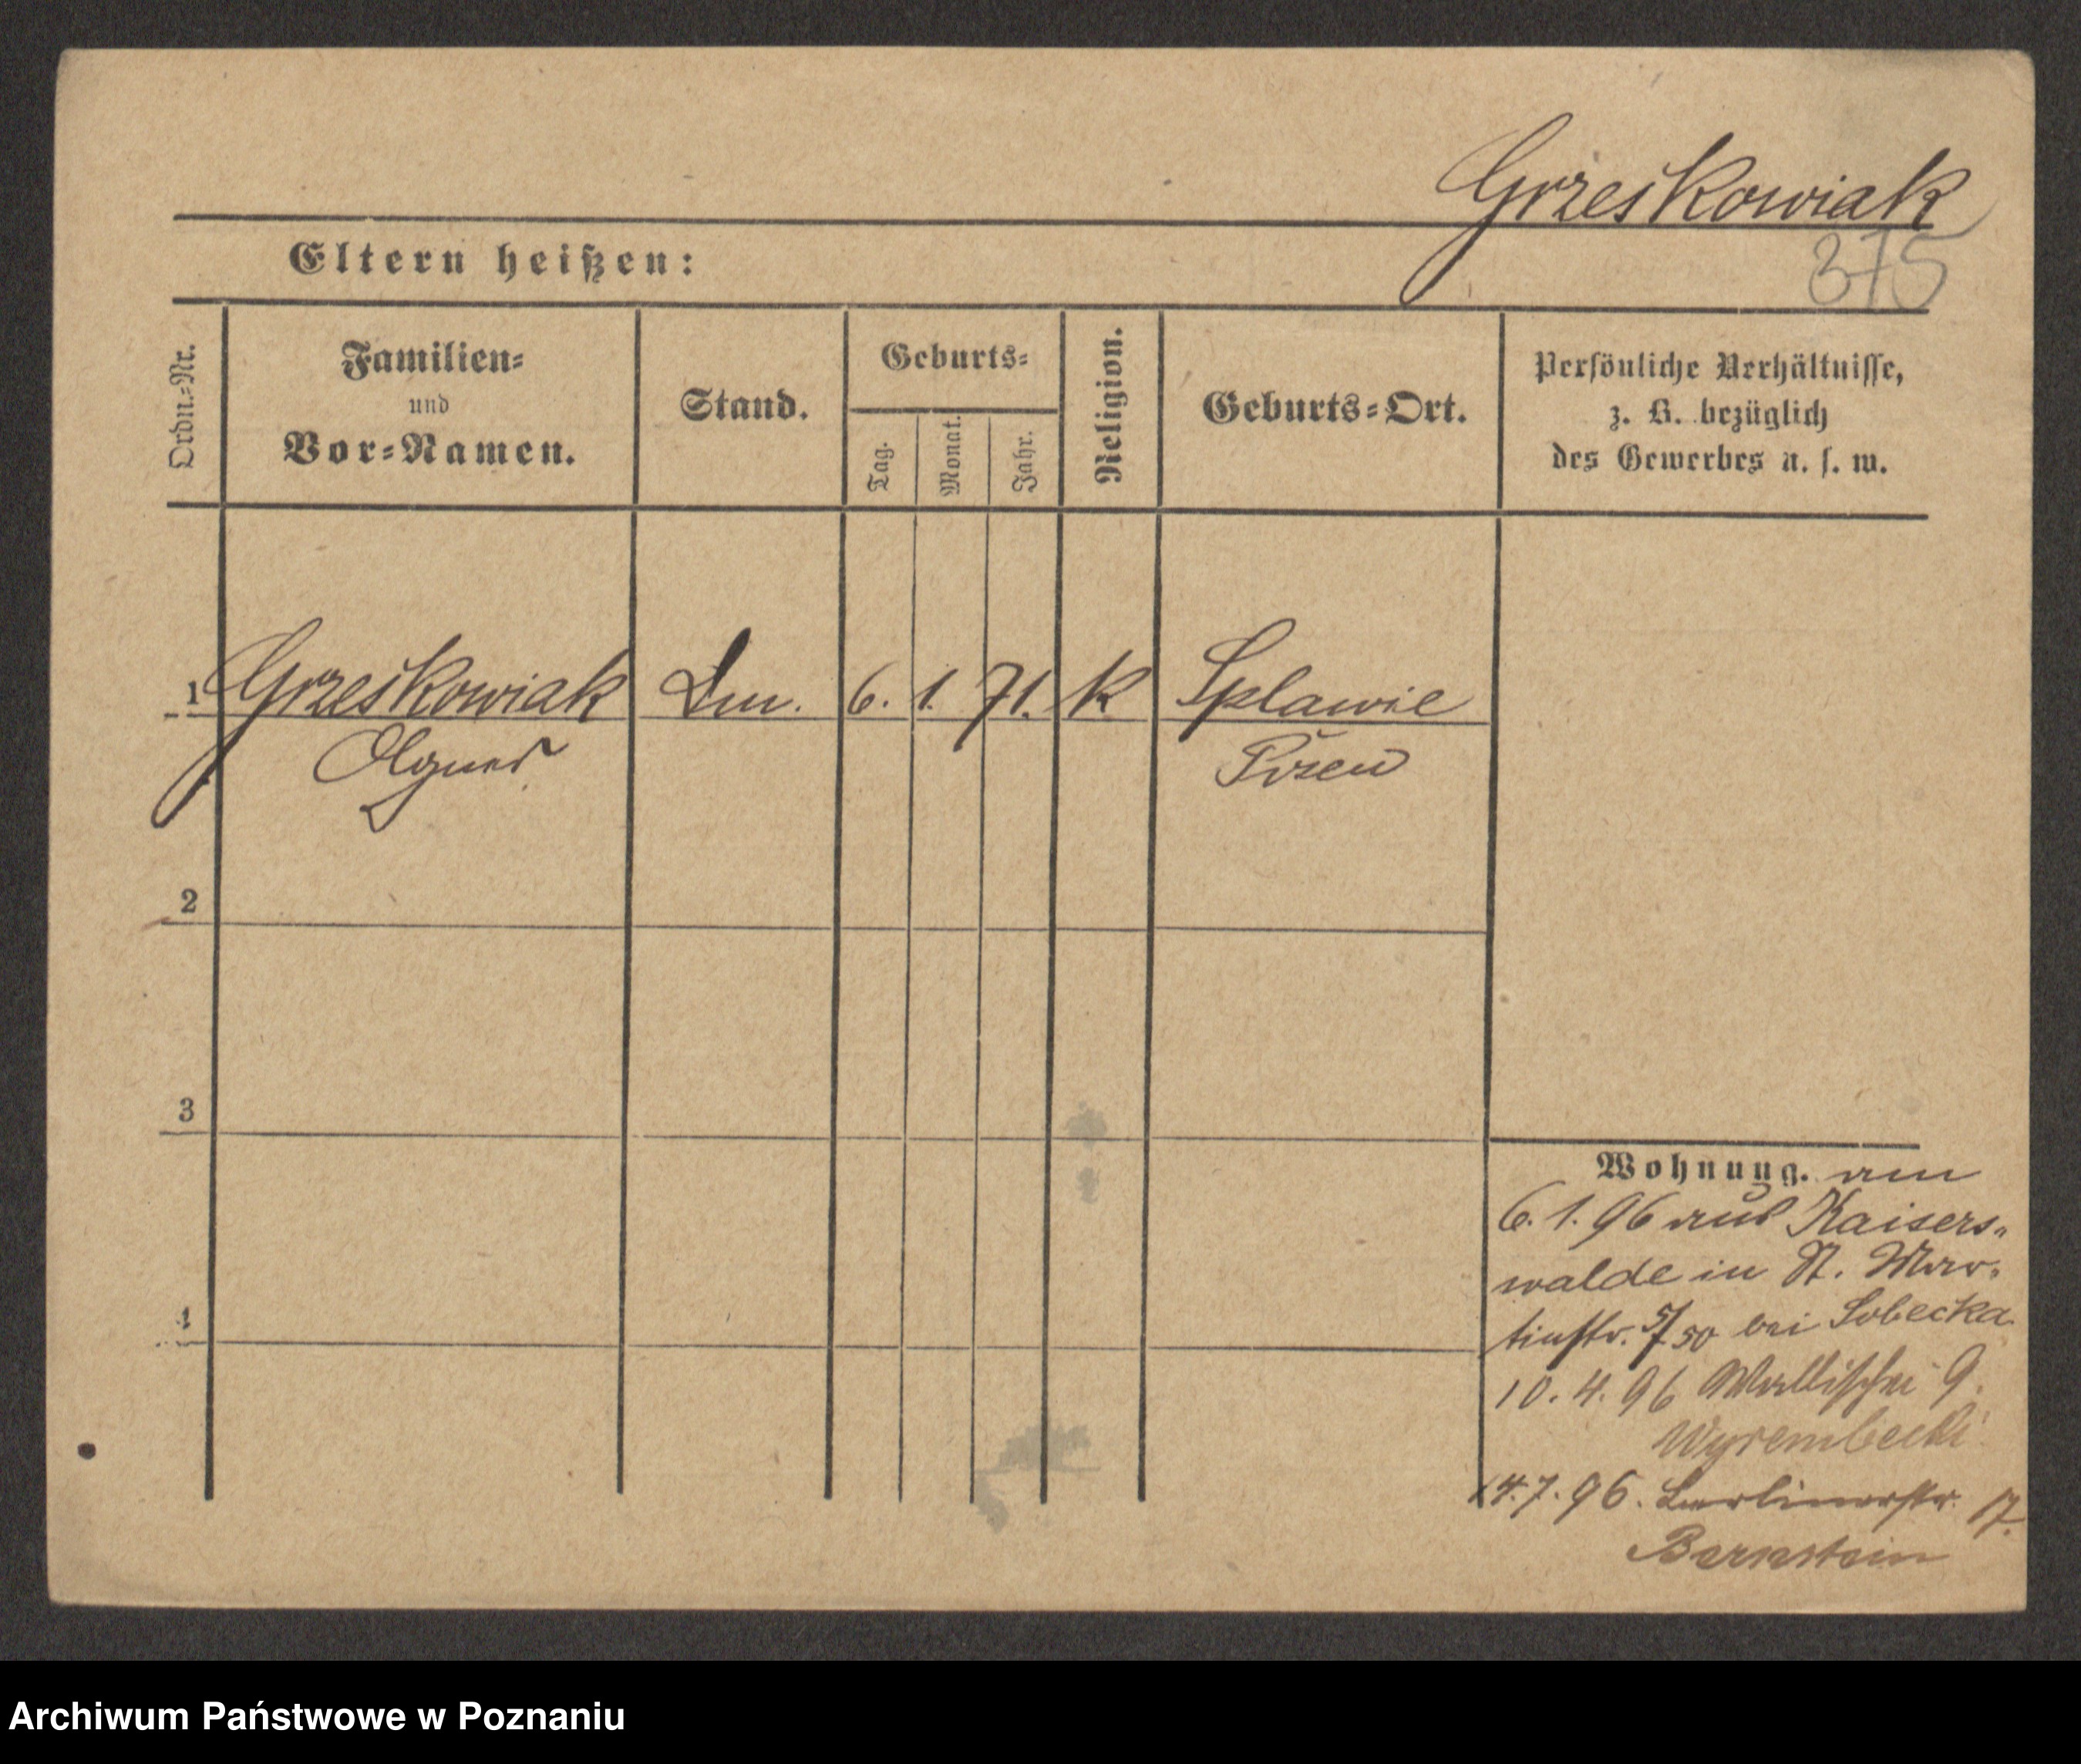 Grzeskowiak
375
Eltern heißen:
Ordn.=Nr.
Familien=
und
Vor=Namen.
Stand.
Geburts=
Tag.
Monat.
Jahr.
Religion.
Geburts=Ort.
Persönliche Verhältnisse,
z. B. bezüglich
des Gewerbes u. s. w.
1 Grzeskowiak Dm. 6. 1. 71. K Splawie
Agnes Posen
2
3
4
Wohnung. am
6. 1. 96 aus Kaisers-
walde in St. Mar-
tinstr. 5/50 bei Sobecka
10. 4. 96 Wallischei 9.
Wyrembecki
14. 7. 96. Berlinerstr. 17.
Bernstein
Archiwum Państwowe w Poznaniu